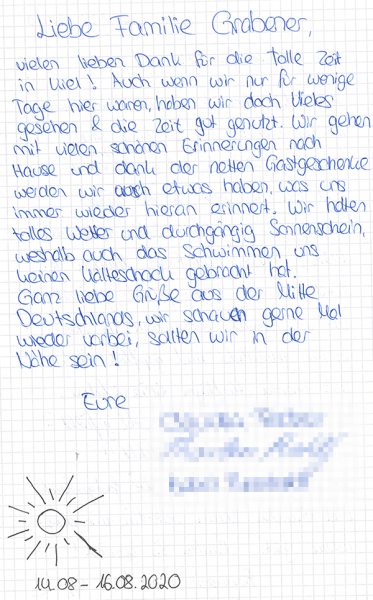 Liebe Familie Grabener,
vielen lieben Dank für die tolle Zeit
in Kiel! Auch wenn wir nur für wenige
Tage hier waren, haben wir doch Vieles
gesehen & die Zeit gut genutzt. Wir gehen
mit vielen schönen Erinnerungen nach
Hause und dank der netten Gastgeschenke
werden wir auch etwas haben, was uns
immer wieder hieran erinnert. Wir hatten
tolles Wetter und durchgängig Sonnenschein,
weshalb auch das Schwimmen uns
keinen Kälteschock gebracht hat.
Ganz liebe Grüße aus der Mitte
Deutschlands, wir schauen gerne Mal
wieder vorbei, sollten wir in der
Nähe sein!
Eure
14.08 - 16.08.2020